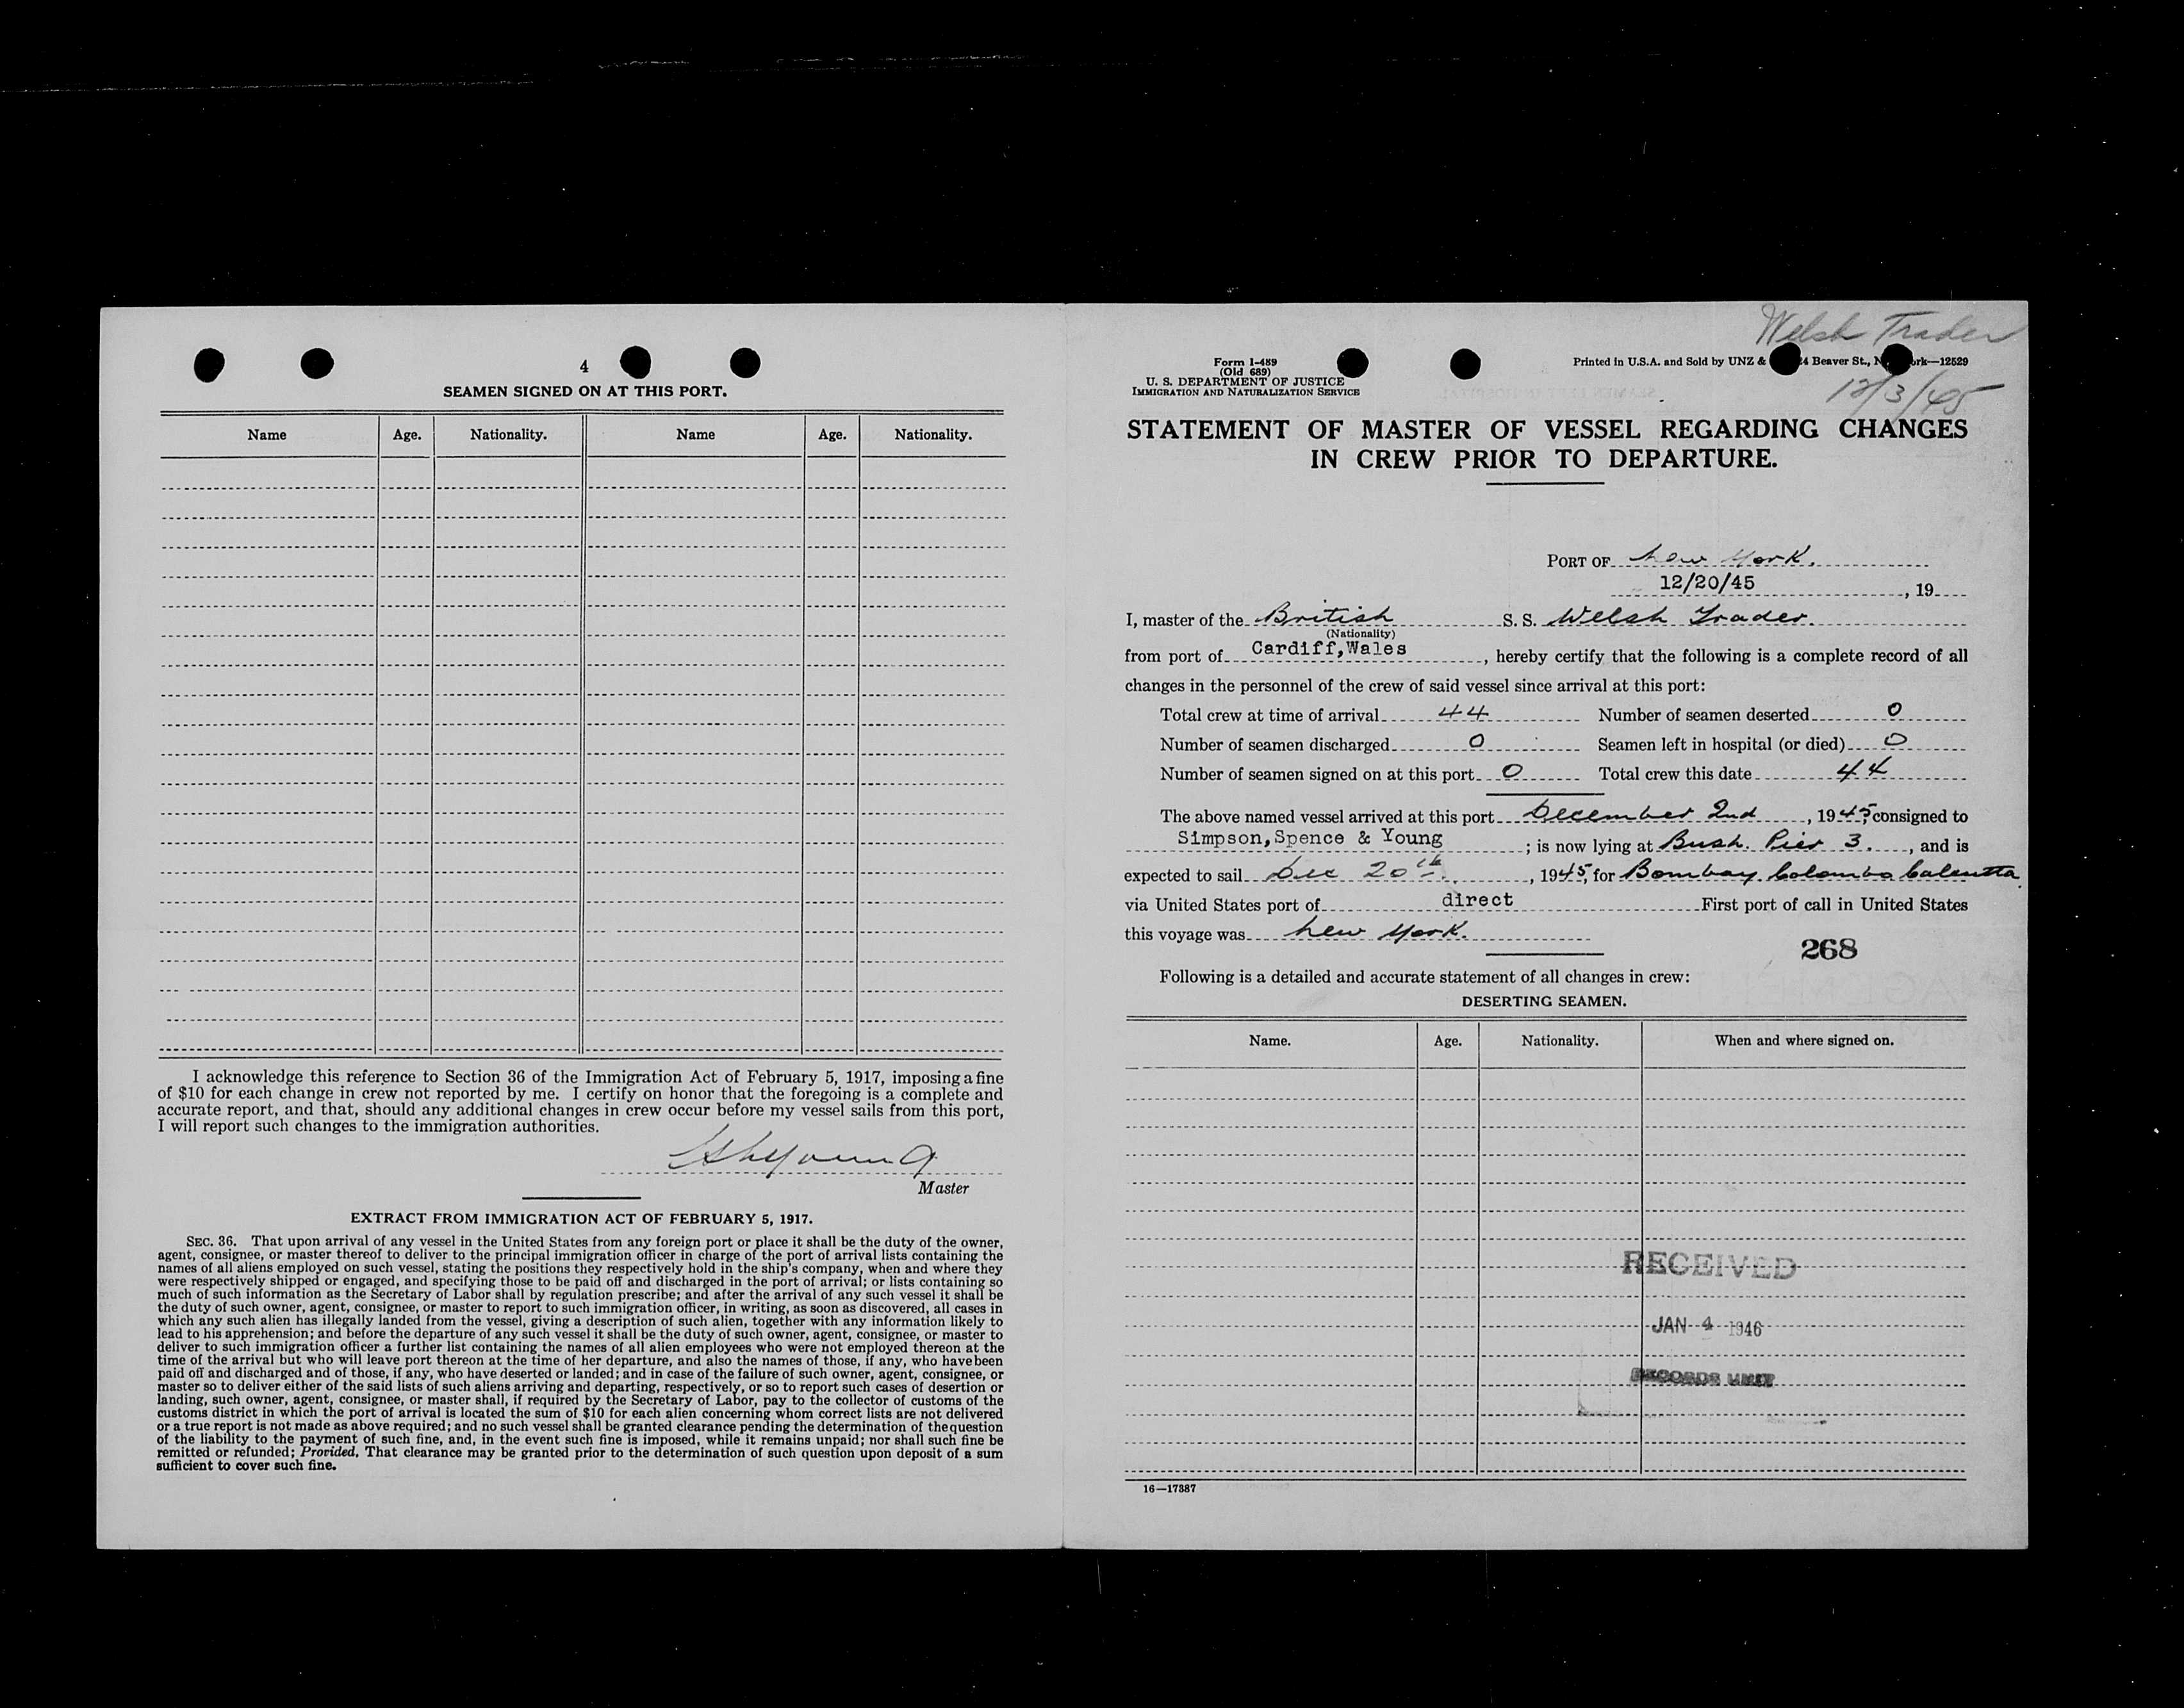 4
SEAMEN SIGNED ON AT THIS PORT.
Name Age. Nationality. Name Age. Nationality.
I acknowledge this reference to Section 36 of the Immigration Act of February 5, 1917, imposing a fine
of $10 for each change in crew not reported by me. I certify on honor that the foregoing is a complete and
accurate report, and that, should any additional changes in crew occur before my vessel sails from this port,
I will report such changes to the immigration authorities.
Master
EXTRACT FROM IMMIGRATION ACT OF FEBRUARY 5, 1917.
SEC. 36. That upon arrival of any vessel in the United States from any foreign port or place it shall be the duty of the owner,
agent, consignee, or master thereof to deliver to the principal immigration officer in charge of the port of arrival lists containing the
names of all aliens employed on such vessel, stating the positions they respectively hold in the ship's company, when and where they
were respectively shipped or engaged, and specifying those to be paid off and discharged in the port of arrival; or lists containing so
much of such information as the Secretary of Labor shall by regulation prescribe; and after the arrival of any such vessel it shall be
the duty of such owner, agent, consignee, or master to report to such immigration officer, in writing, as soon as discovered, all cases in
which any such alien has illegally landed from the vessel, giving a description of such alien, together with any information likely to
lead to his apprehension; and before the departure of any such vessel it shall be the duty of such owner, agent, consignee, or master to
deliver to such immigration officer a further list containing the names of all alien employees who were not employed thereon at the
time of the arrival but who will leave port thereon at the time of her departure, and also the names of those, if any, who have been
paid off and discharged and of those, if any, who have deserted or landed; and in case of the failure of such owner, agent, consignee, or
master so to deliver either of the said lists of such aliens arriving and departing, respectively, or so to report such cases of desertion or
landing, such owner, agent, consignee, or master shall, if required by the Secretary of Labor, pay to the collector of customs of the
customs district in which the port of arrival is located the sum of $10 for each alien concerning whom correct lists are not delivered
or a true report is not made as above required; and no such vessel shall be granted clearance pending the determination of the question
of the liability to the payment of such fine, and, in the event such fine is imposed, while it remains unpaid; nor shall such fine be
remitted or refunded; Provided, That clearance may be granted prior to the determination of such question upon deposit of a sum
sufficient to cover such fine.
Welsh Trader
12/3/45
Form I-489
(Old 689)
U. S. DEPARTMENT OF JUSTICE
IMMIGRATION AND NATURALIZATION SERVICE
Printed in U.S.A. and Sold by UNZ & 4 Beaver St., N ork—12529
STATEMENT OF MASTER OF VESSEL REGARDING CHANGES
IN CREW PRIOR TO DEPARTURE.
PORT OF New York.
12/20/45 , 19
I, master of the British S. S. Welsh Trader.
(Nationality)
from port of Cardiff,Wales , hereby certify that the following is a complete record of all
changes in the personnel of the crew of said vessel since arrival at this port:
Total crew at time of arrival 44 Number of seamen deserted 0
Number of seamen discharged 0 Seamen left in hospital (or died) 0
Number of seamen signed on at this port 0 Total crew this date 44
The above named vessel arrived at this port December 2nd , 1945, consigned to
Simpson,Spence & Young ; is now lying at Bush. Pier 3. , and is
expected to sail Dec 20th , 1945, for Bombay. Colombo Calcutta
via United States port of direct First port of call in United States
this voyage was New York.
268
Following is a detailed and accurate statement of all changes in crew:
DESERTING SEAMEN.
Name. Age. Nationality. When and where signed on.
RECEIVED
JAN 4 1946
RECORDS UNIT
16—17387